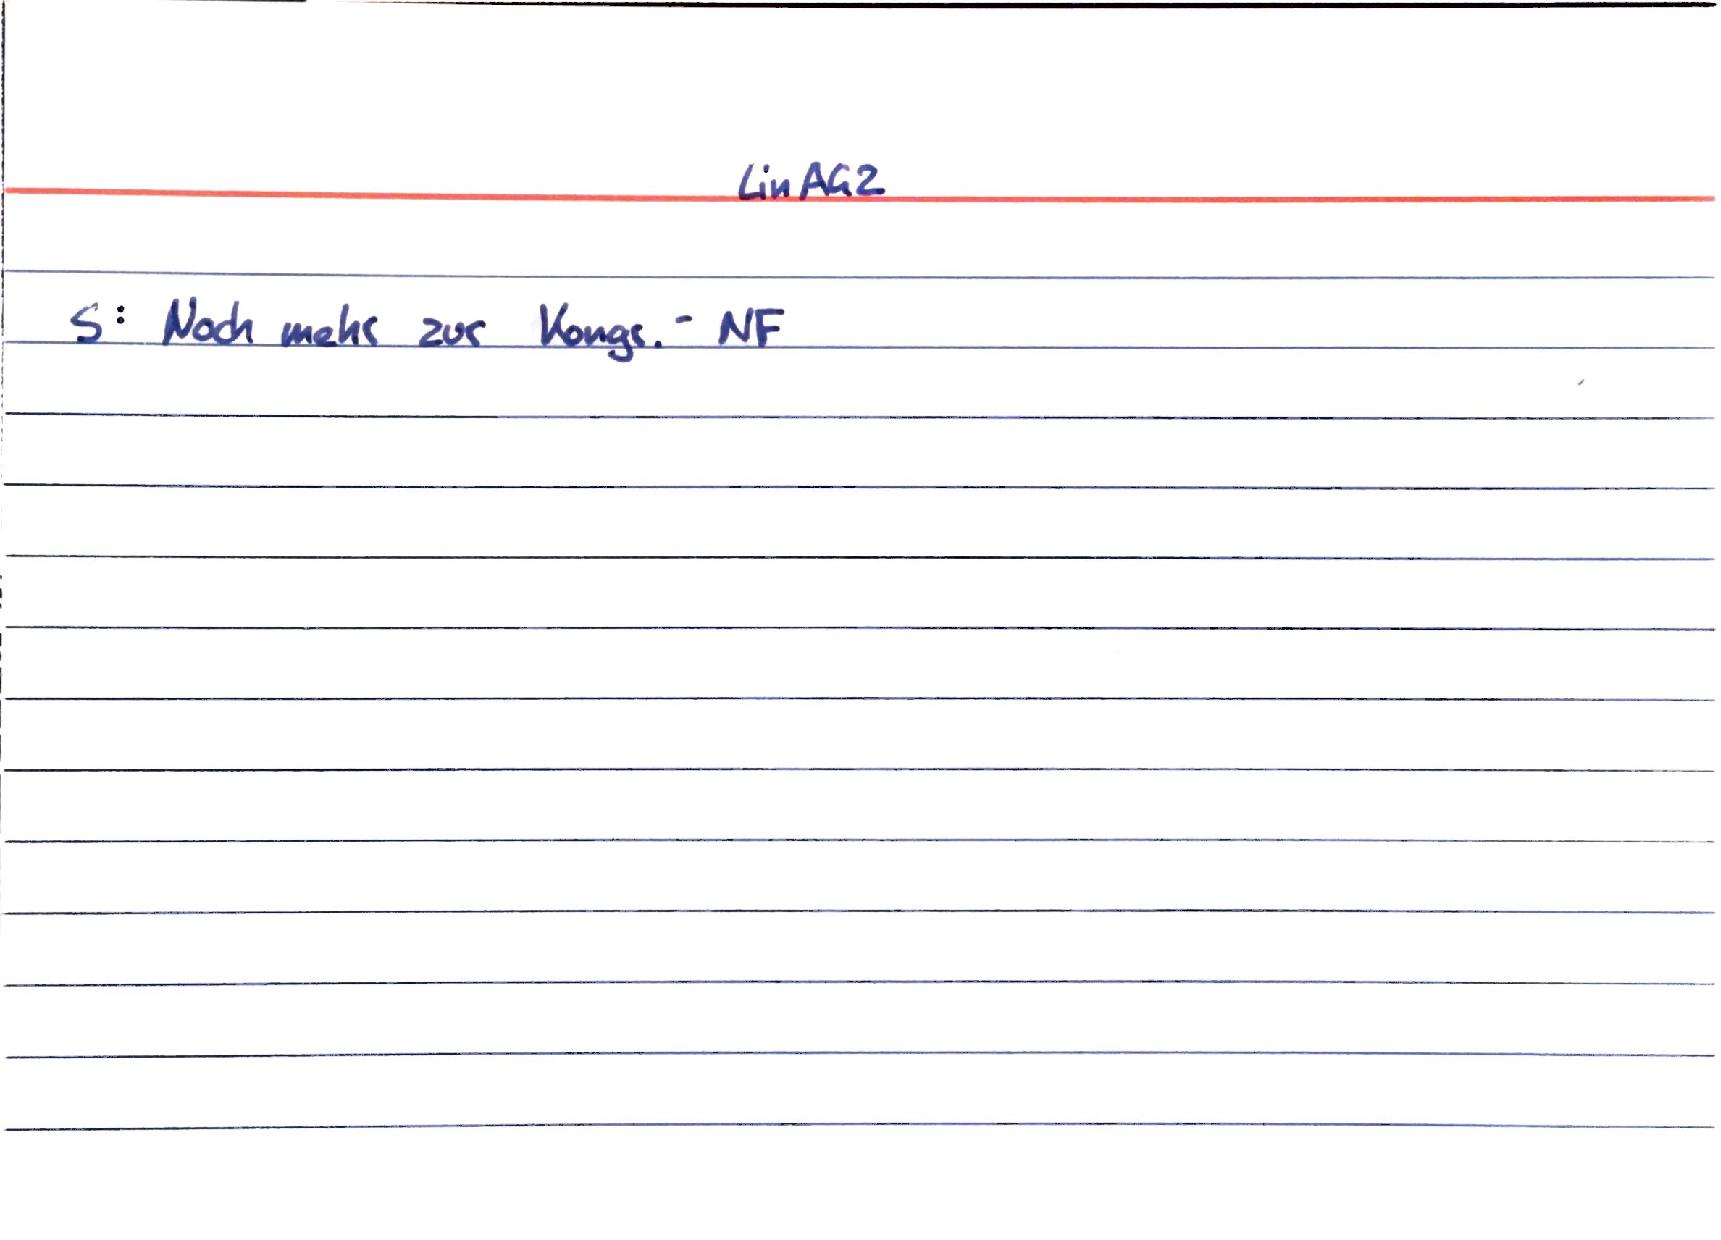 LinAG2
S: Noch mehr zur Kongr.-NF